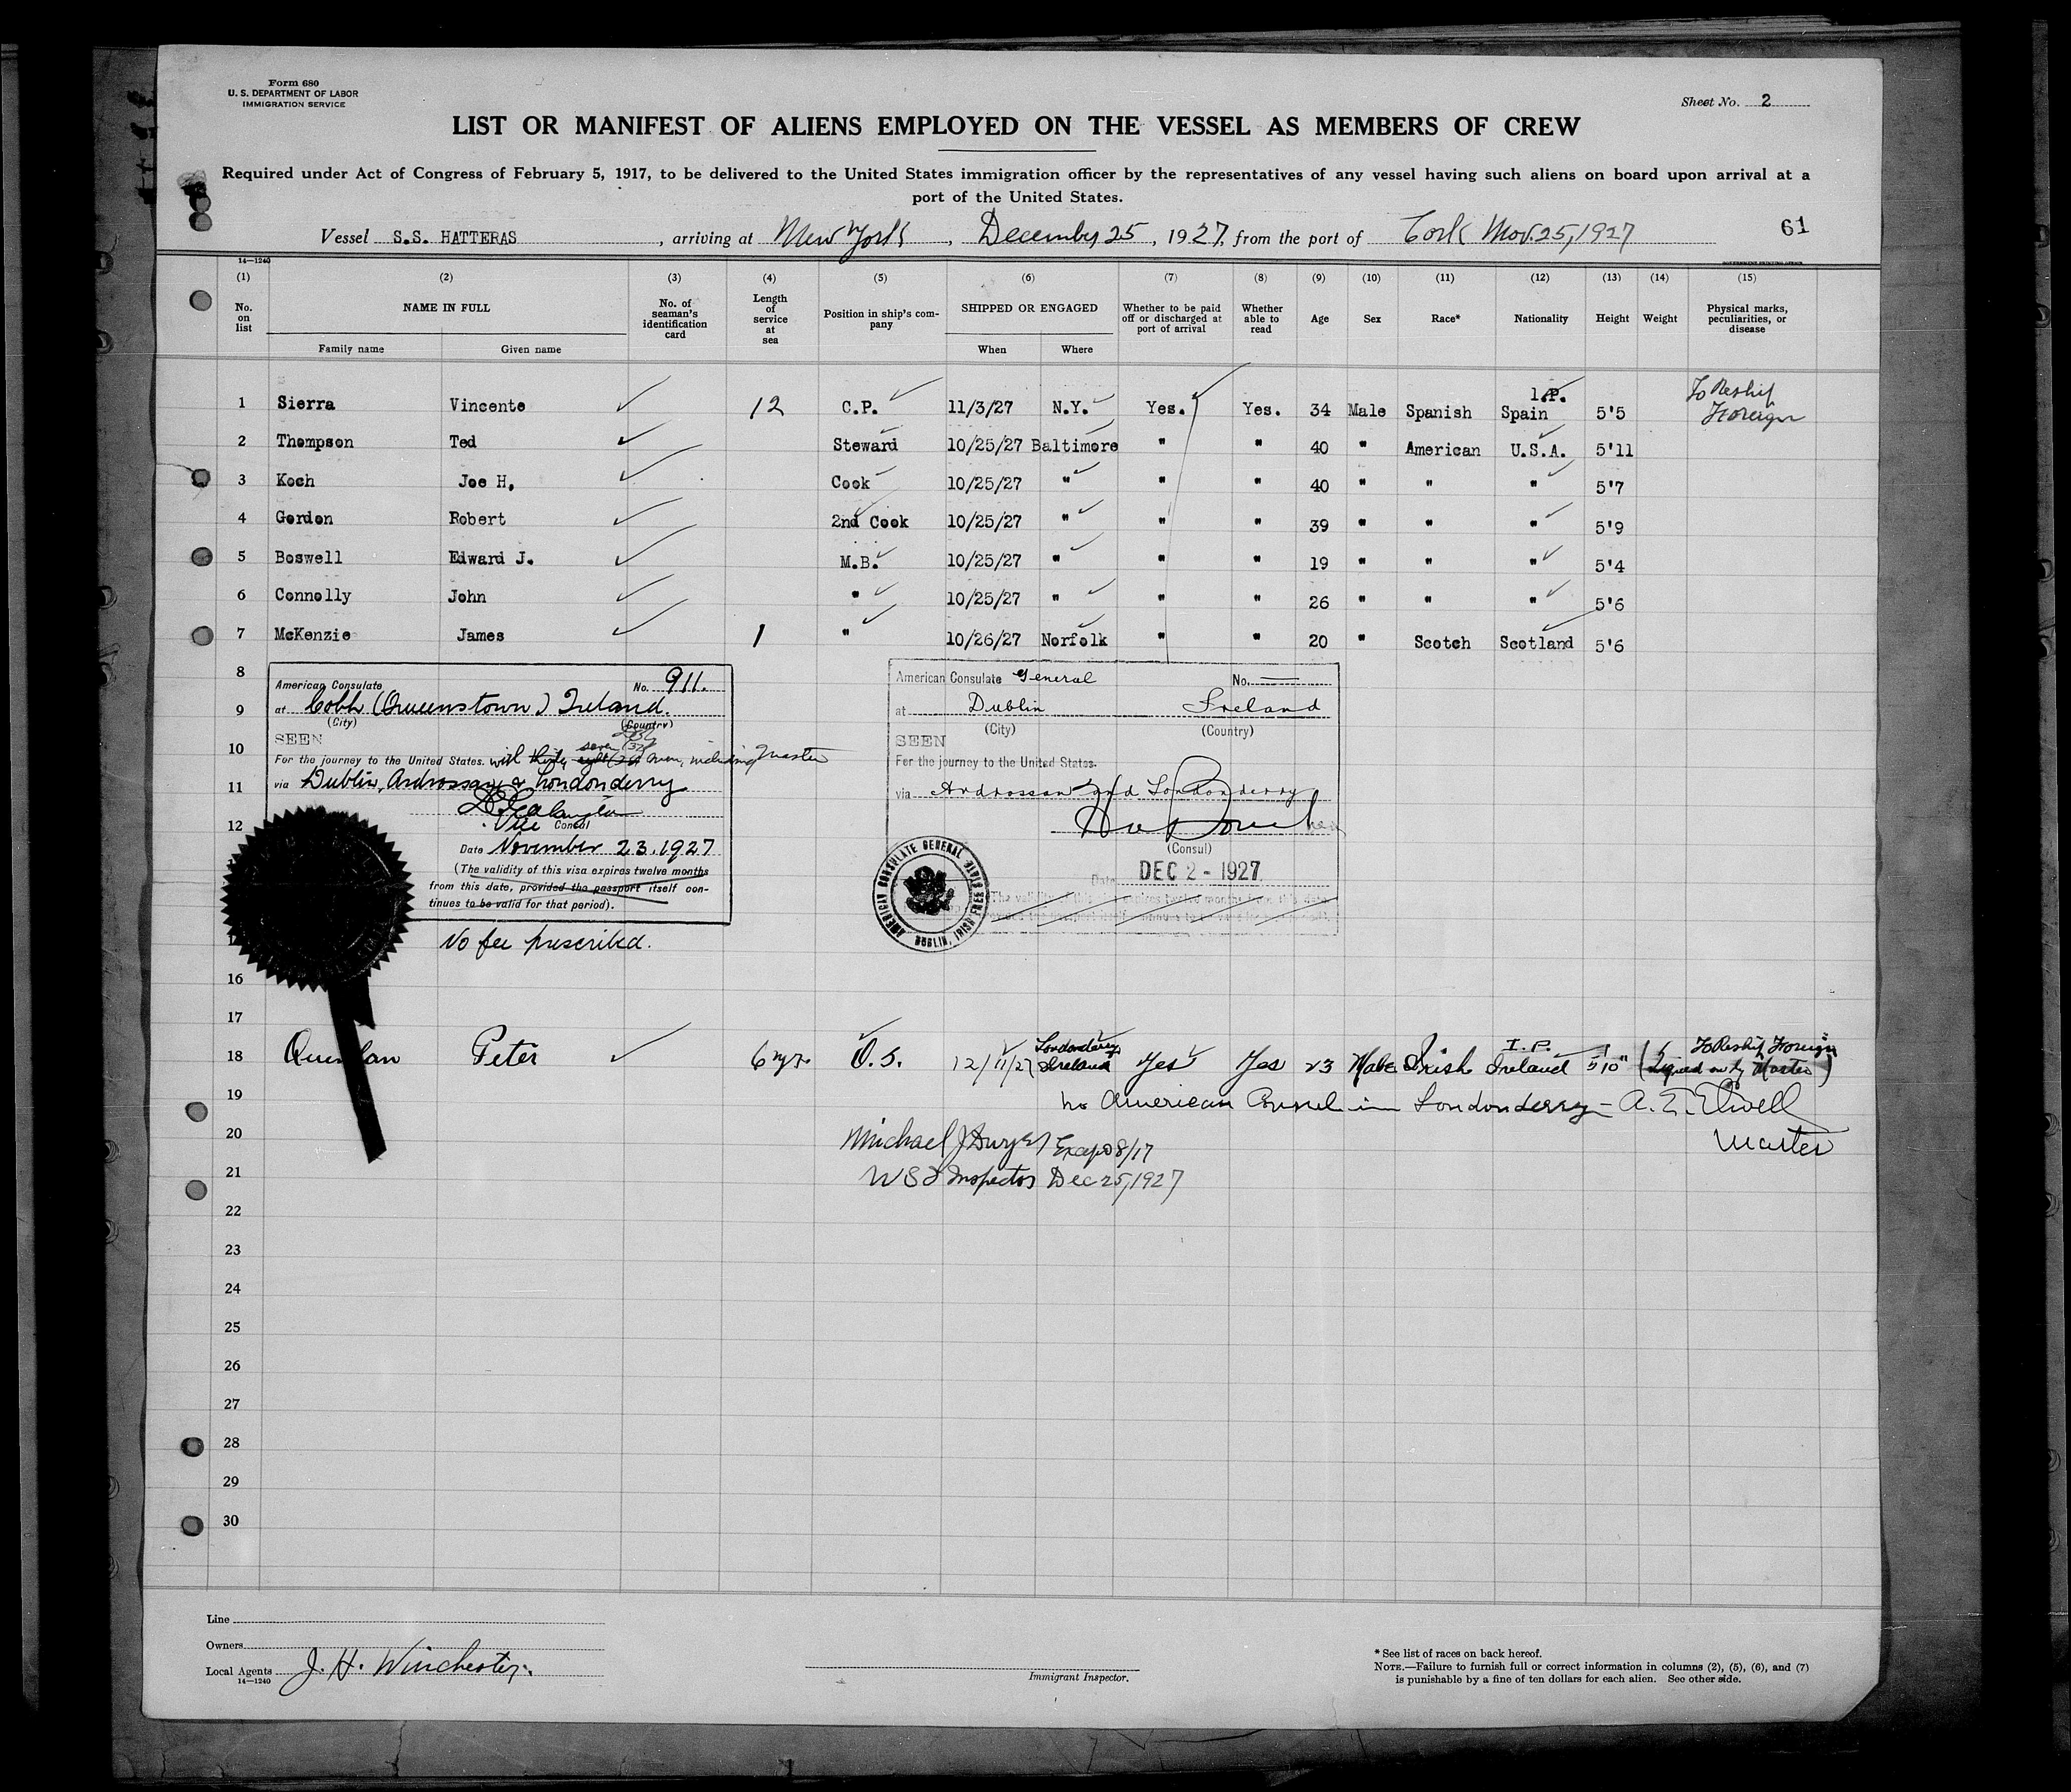 Form 680
U. S. DEPARTMENT OF LABOR
IMMIGRATION SERVICE
Sheet No. 2
LIST OR MANIFEST OF ALIENS EMPLOYED ON THE VESSEL AS MEMBERS OF CREW
Required under Act of Congress of February 5, 1917, to be delivered to the United States immigration officer by the representatives of any vessel having such aliens on board upon arrival at a
port of the United States.
Vessel S.S. HATTERAS, arriving at New York, December 25, 1927, from the port of Cork Nov. 25, 1927
61
14—1240
(1) (2) (3) (4) (5) (6) (7) (8) (9) (10) (11) (12) (13) (14) (15)
No. on list NAME IN FULL No. of seaman's identification card Length of service at sea Position in ship's company SHIPPED OR ENGAGED Whether to be paid off or discharged at port of arrival Whether able to read Age Sex Race* Nationality Height Weight Physical marks, peculiarities, or disease
Family name Given name When Where
1 Sierra Vincente 12 C.P. 11/3/27 N.Y. Yes. Yes. 34 Male Spanish I.P. Spain 5'5 To Reship Foreign
2 Thompson Ted Steward 10/25/27 Baltimore " " 40 " American U.S.A. 5'11
3 Koch Joe H. Cook 10/25/27 " " " 40 " " " 5'7
4 Gordon Robert 2nd Cook 10/25/27 " " " 39 " " " 5'9
5 Boswell Edward J. M.B. 10/25/27 " " " 19 " " " 5'4
6 Connolly John " 10/25/27 " " " 26 " " " 5'6
7 McKenzie James 1 " 10/26/27 Norfolk " " 20 " Scotch Scotland 5'6
8
9
10
11
12
American Consulate No. 911.
at Cobh (Queenstown) Ireland.
(City) (Country)
SEEN
seven (37)
For the journey to the United States. with thirty eight men, including Master
via Dublin, Ardrossan & Londonderry
Vice Consul
Date November 23, 1927
(The validity of this visa expires twelve months
from this date, provided the passport itself con-
tinues to be valid for that period).
No fee prescribed.
American Consulate General No.
at Dublin Ireland
(City) (Country)
SEEN
For the journey to the United States.
via Ardrossan and Londonderry
(Consul)
Date DEC 2 - 1927
AMERICAN CONSULATE GENERAL DUBLIN, IRISH FREE STATE
16
17
18 Peter 6 yrs. O.S. 12/11/27 Londonderry Ireland Yes Yes 23 Male Irish I.P. Ireland 5'10" To Reship Foreign (Signed on by Master)
19 No American Consul in Londonderry — A. E. Elwell
20 Master
Michael J Dwyer
21 U S I Inspector Dec 25, 1927
22
23
24
25
26
27
28
29
30
Line
Owners
Local Agents J. H. Winchester
14—1240
Immigrant Inspector.
* See list of races on back hereof.
NOTE.—Failure to furnish full or correct information in columns (2), (5), (6), and (7)
is punishable by a fine of ten dollars for each alien. See other side.